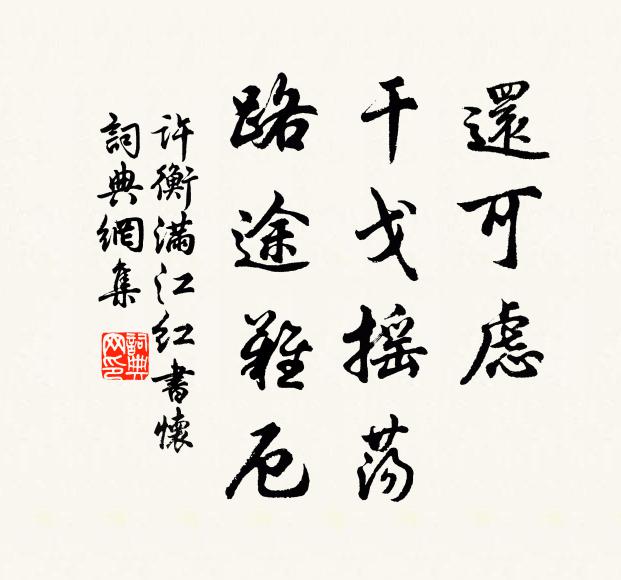 還可慮
干戈摇荡
路途難厄
許衡滿江红書懷
詞典網集
詞典
网印